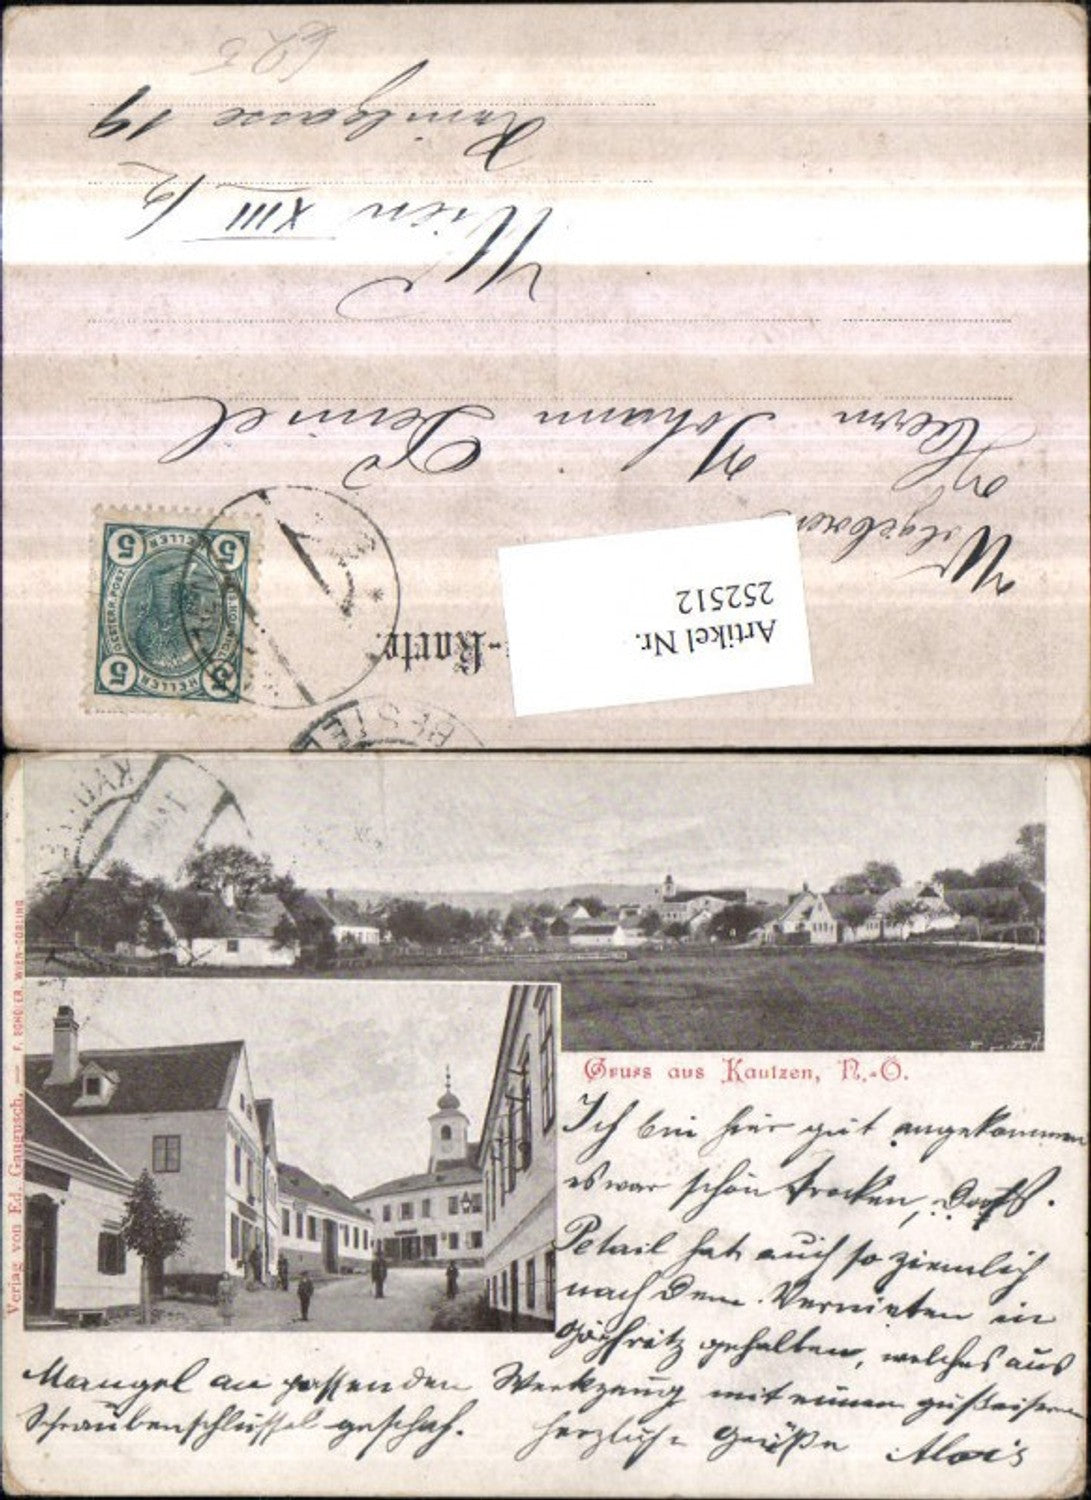 Artikel Nr.
252512
-Karte.
Wolgeboren
Herrn Johann
Wien XIII/2
19
625
5 5
HELLER
5 5
HELLER
Gruss aus Kautzen, N.-Ö.
Verlag von Ed. Gaugusch. — F. ROHRER, WIEN-DÖBLING
Ich bin hier gut angekommen
es war schön trocken,
Petail hat auch so ziemlich
nach dem Vernieten in
Göpfritz gehalten, welches aus
Mangel an passenden Werkzeug mit einem gußeisernen
Schraubenschlüssel geschah. herzliche Grüße Alois